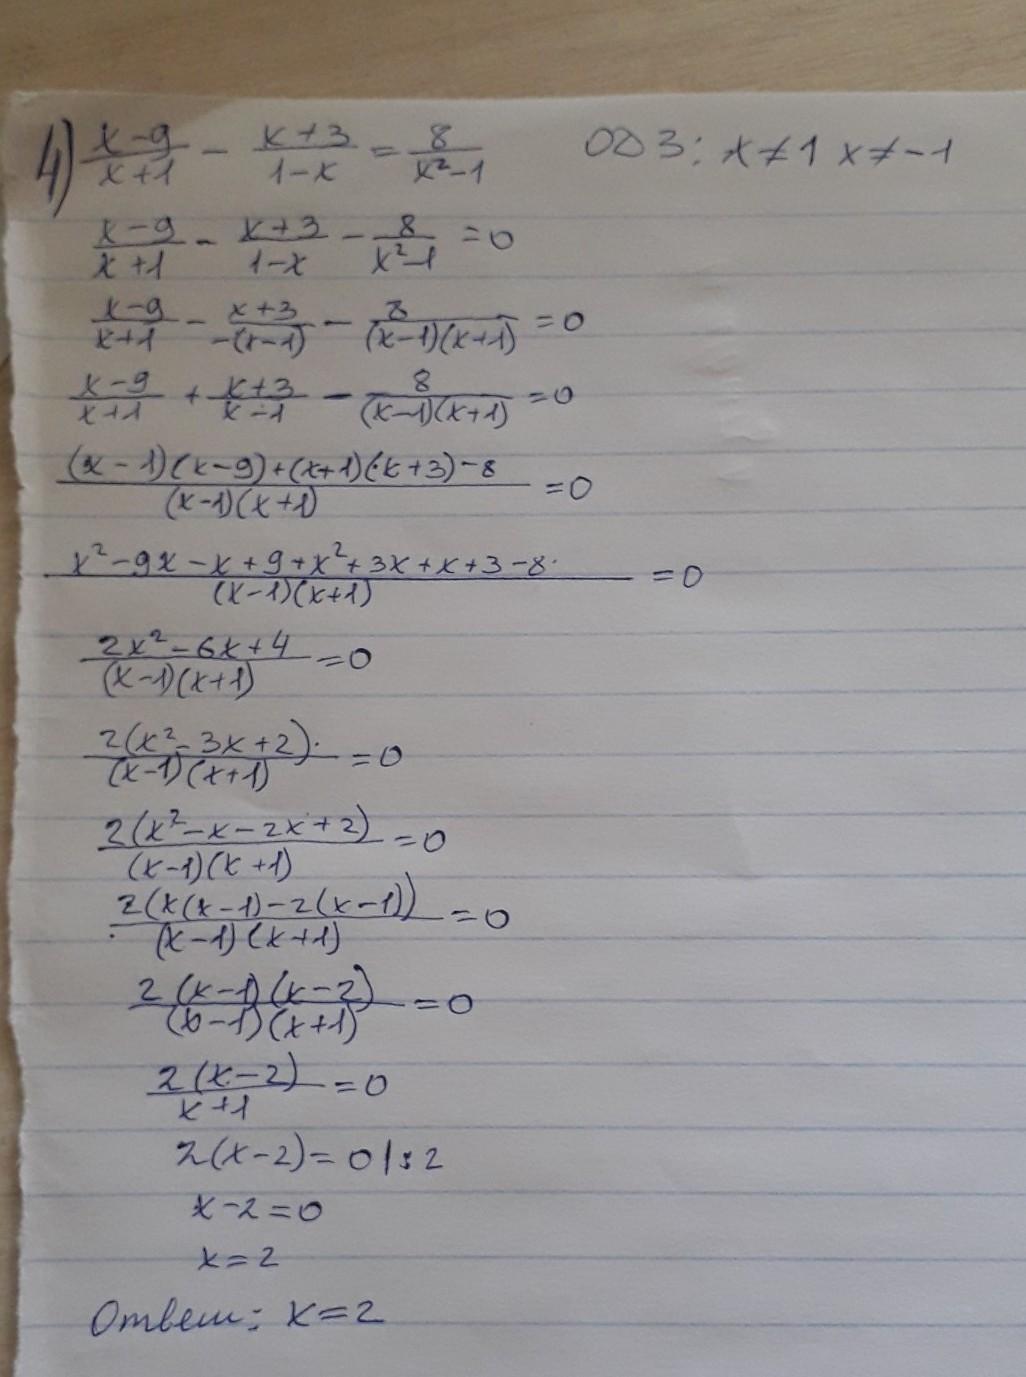 4) (x-9)/(x+1) - (x+3)/(1-x) = 8/(x²-1) ОДЗ: x≠1 x≠-1
(x-9)/(x+1) - (x+3)/(1-x) - 8/(x²-1) = 0
(x-9)/(x+1) - (x+3)/(-(x-1)) - 8/((x-1)(x+1)) = 0
(x-9)/(x+1) + (x+3)/(x-1) - 8/((x-1)(x+1)) = 0
((x-1)(x-9)+(x+1)(x+3)-8)/((x-1)(x+1)) = 0
(x²-9x-x+9+x²+3x+x+3-8)/((x-1)(x+1)) = 0
(2x²-6x+4)/((x-1)(x+1)) = 0
2(x²-3x+2)/((x-1)(x+1)) = 0
2(x²-x-2x+2)/((x-1)(x+1)) = 0
2(x(x-1)-2(x-1))/((x-1)(x+1)) = 0
2(x-1)(x-2)/((x-1)(x+1)) = 0
2(x-2)/(x+1) = 0
2(x-2)=0 |:2
x-2=0
x=2
Ответ: x=2